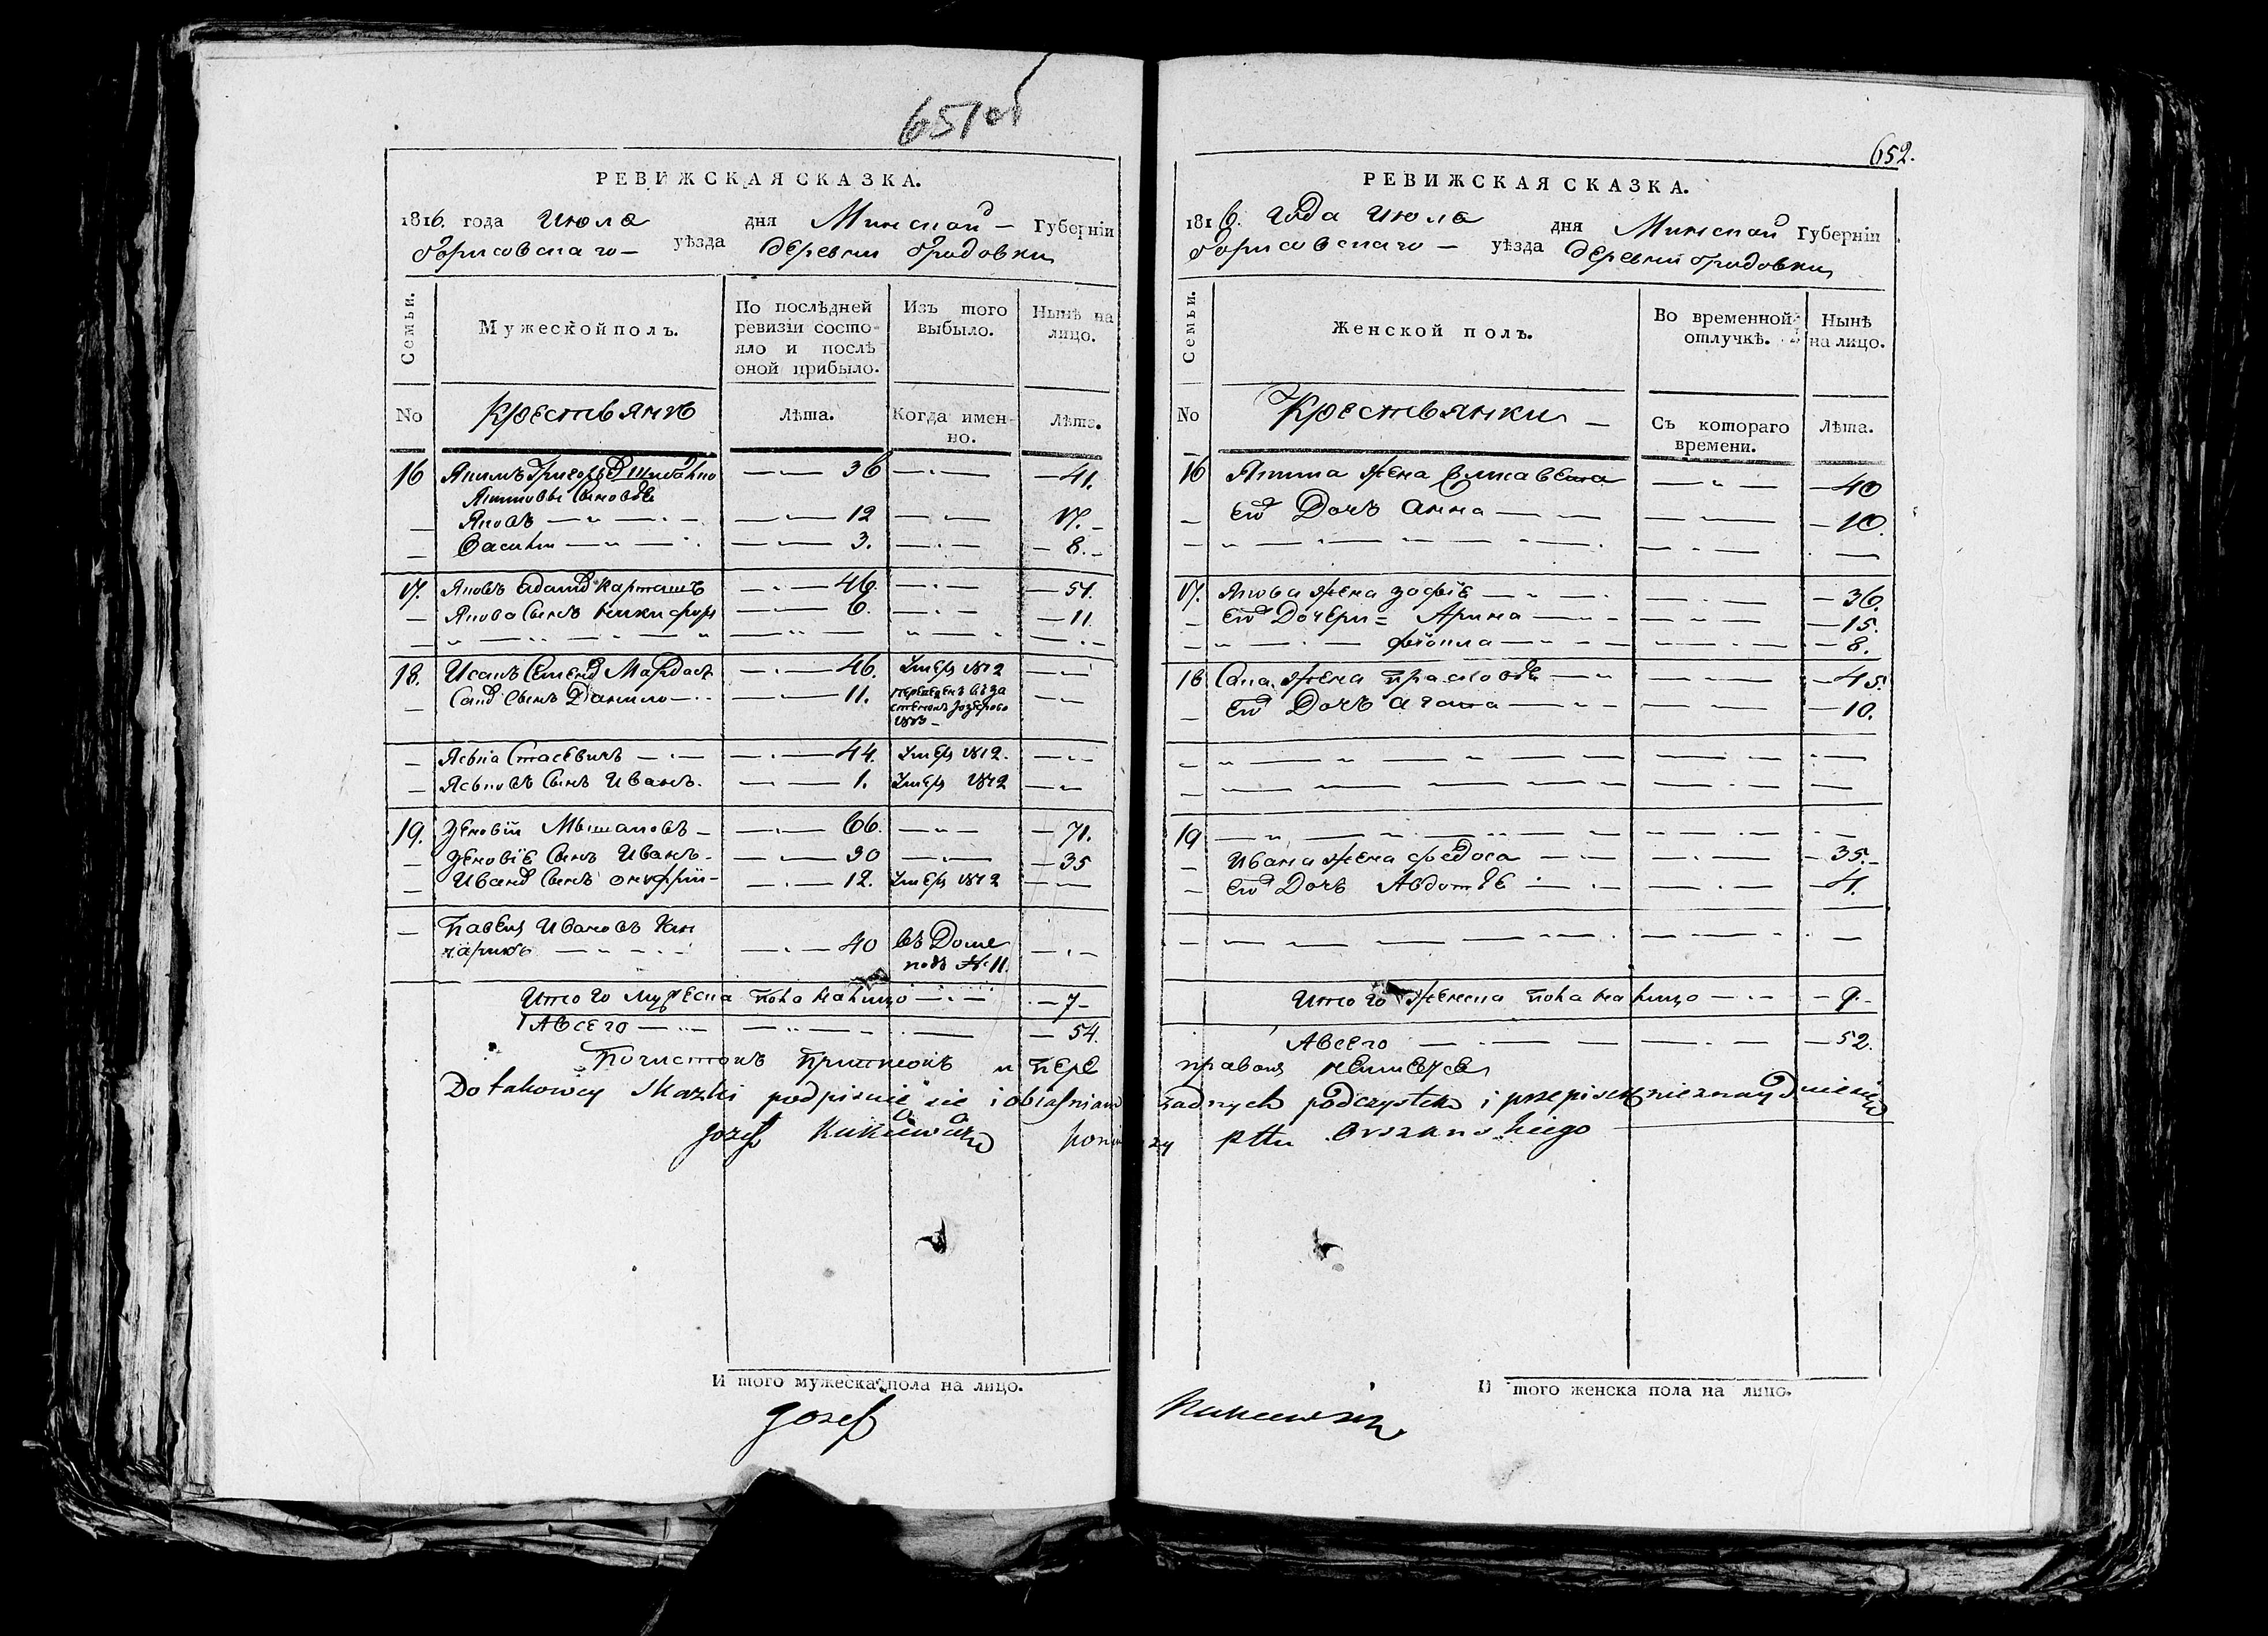 651об
РЕВИЖСКАЯ СКАЗКА.
1816. года Июля дня Минской Губерніи
Борисовскаго уѣзда деревни Бродовки
Семьи.
Мужеской полъ.
По послѣдней ревизіи состояло и послѣ оной прибыло.
Изъ того выбыло.
Нынѣ на лицо.
No Крестьянъ Лѣта. Когда именно. Лѣта.
16 Якимъ 36 41.
Якимовы Сыновѣ
Яковъ 12 17.
Василий 3. 8.
17. Яковъ Адамов Карташъ 46. 51.
Якова Сынъ Никифор 6. 11
18. Исакъ Семенов 46. Умеръ 1812
Сынъ Данило 11.
Стасевичъ 44. Умеръ 1812.
Сынъ Иванъ. 1. Умеръ 1812
19. Зеновій 66. 71.
Зеновіе Сынъ Иванъ 30 35
Иванов Сынъ Онуфрій 12. Умеръ 1812
Павелъ Ивановъ 40 въ Доме
подъ № 11.
Итого мужеска пола на лицо 7
А всего 54.
Почистокъ приписокъ и пере
Do takowey skazki podpisuie sie i obiasniam
Jozef
И того мужеска пола на лицо.
Jozef
652.
РЕВИЖСКАЯ СКАЗКА.
1816. года Июля дня Минской Губерніи
Борисовскаго уѣзда деревни Бродовки
Семьи.
Женской полъ.
Во временной отлучкѣ.
Нынѣ на лицо.
No Крестьянки Съ котораго времени. Лѣта.
16 Якима жена Елисавета 40
его Дочъ Анна 10.
17. Якова жена Зофіе 36.
его Дочери Арина 15.
8.
18 жена 45.
его Дочъ Агата 10.
19
Ивана жена Федося 35.
его Дочъ Авдотѣе 4.
Итого женска пола на лицо 9.
А всего 52.
правокъ неимеетсе
zadnych podczystek i przepisek nieznayduie sie
pttu Orszanskiego
И того женска пола на лицо.